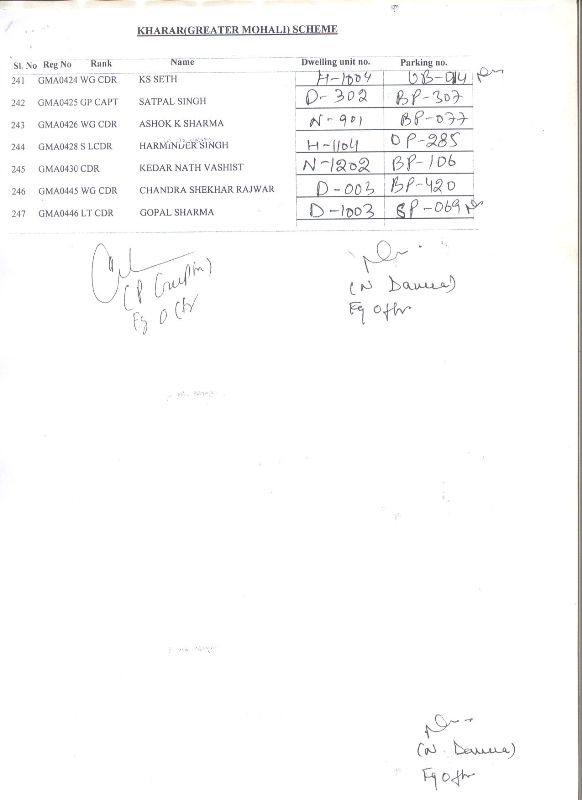 KHARAR(GREATER MOHALI) SCHEME
Sl. No Reg No Rank Name Dwelling unit no. Parking no.
241 GMA0424 WG CDR KS SETH H-1004 UB-014
242 GMA0425 GP CAPT SATPAL SINGH D-302 BP-307
243 GMA0426 WG CDR ASHOK K SHARMA N-901 BP-077
244 GMA0428 S LCDR HARMINDER SINGH H-1104 OP-285
245 GMA0430 CDR KEDAR NATH VASHIST N-1202 BP-106
246 GMA0445 WG CDR CHANDRA SHEKHAR RAJWAR D-003 BP-420
247 GMA0446 LT CDR GOPAL SHARMA D-1003 SP-069
Fg Offr
Fg Offr
Fg Offr